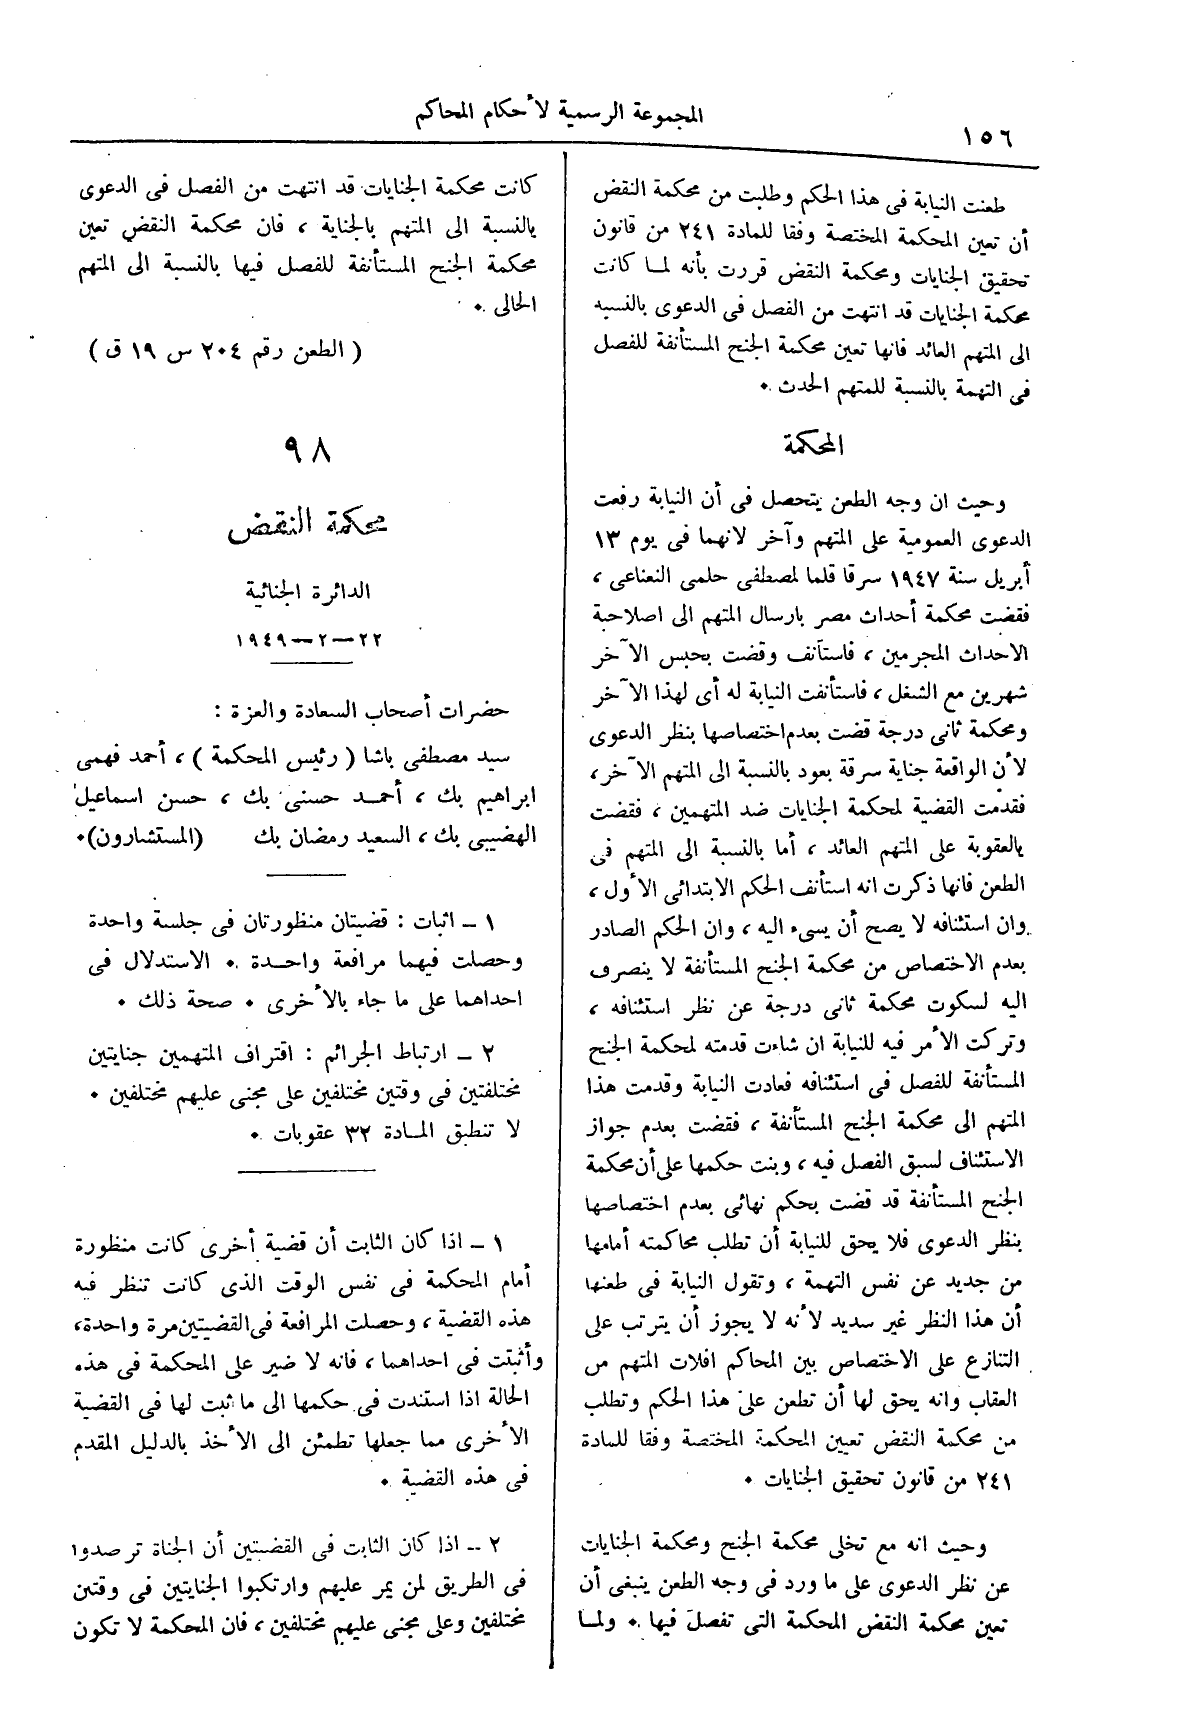 المجموعة الرسمية لأحكام المحاكم
١٥٦
طعنت النيابة فى هذا الحكم وطلبت من محكمة النقض
أن تعين المحكمة المختصة وفقا للمادة ٢٤١ من قانون
تحقيق الجنايات ومحكمة النقض قررت بأنه لما كانت
محكمة الجنايات قد انتهت من الفصل فى الدعوى بالنسبه
الى المتهم العائد فانها تعين محكمة الجنح المستأنفة للفصل
فى التهمة بالنسبة للمتهم الحدث .
المحكمة
وحيث ان وجه الطعن يتحصل فى أن النيابة رفعت
الدعوى العمومية على المتهم وآخر لانهما فى يوم ١٣
أبريل سنة ١٩٤٧ سرقا قلما لمصطفى حلمى النعناعى ،
فقضت محكمة أحداث مصر بارسال المتهم الى اصلاحية
الاحداث المجرمين ، فاستأنف وقضت بحبس الآخر
شهرين مع الشغل ، فاستأنفت النيابة له أى لهذا الآخر
ومحكمة ثانى درجة قضت بعدم اختصاصها بنظر الدعوى
لأن الواقعة جناية سرقة بعود بالنسبة الى المتهم الآخر،
فقدمت القضية لمحكمة الجنايات ضد المتهمين ، فقضت
بالعقوبة على المتهم العائد ، أما بالنسبة الى المتهم فى
الطعن فانها ذكرت انه استأنف الحكم الابتدائى الأول ،
وان استئنافه لا يصح أن يسىء اليه ، وان الحكم الصادر
بعدم الاختصاص من محكمة الجنح المستأنفة لا ينصرف
اليه لسكوت محكمة ثانى درجة عن نظر استئنافه ،
وتركت الأمر فيه للنيابة ان شاءت قدمته لمحكمة الجنح
المستأنفة للفصل فى استئنافه فعادت النيابة وقدمت هذا
المتهم الى محكمة الجنح المستأنفة ، فقضت بعدم جواز
الاستئناف لسبق الفصل فيه ، وبنت حكمها على أن محكمة
الجنح المستأنفة قد قضت بحكم نهائى بعدم اختصاصها
بنظر الدعوى فلا يحق للنيابة أن تطلب محاكمته أمامها
من جديد عن نفس التهمة ، وتقول النيابة فى طعنها
أن هذا النظر غير سديد لأنه لا يجوز أن يترتب على
التنازع على الاختصاص بين المحاكم افلات المتهم من
العقاب وانه يحق لها أن تطعن على هذا الحكم وتطلب
من محكمة النقض تعيين المحكمة المختصة وفقا للمادة
٢٤١ من قانون تحقيق الجنايات .
وحيث انه مع تخلى محكمة الجنح ومحكمة الجنايات
عن نظر الدعوى على ما ورد فى وجه الطعن ينبغى أن
تعين محكمة النقض المحكمة التى تفصل فيها . ولما
كانت محكمة الجنايات قد انتهت من الفصل فى الدعوى
بالنسبة الى المتهم بالجناية ، فان محكمة النقض تعين
محكمة الجنح المستأنفة للفصل فيها بالنسبة الى المتهم
الحالى .
( الطعن رقم ٢٠٤ س ١٩ ق )
٩٨
محكمة النقض
الدائرة الجنائية
٢٢—٢—١٩٤٩
حضرات أصحاب السعادة والعزة :
سيد مصطفى باشا ( رئيس المحكمة ) ، أحمد فهمى
ابراهيم بك ، أحمد حسنى بك ، حسن اسماعيل
الهضيبى بك ، السعيد رمضان بك (المستشارون).
١ ــ اثبات : قضيتان منظورتان فى جلسة واحدة
وحصلت فيهما مرافعة واحدة . الاستدلال فى
احداهما على ما جاء بالأخرى . صحة ذلك .
٢ ــ ارتباط الجرائم : اقتراف المتهمين جنايتين
مختلفتين فى وقتين مختلفين على مجنى عليهم مختلفين .
لا تنطبق المادة ٣٢ عقوبات .
١ ــ اذا كان الثابت أن قضية أخرى كانت منظورة
أمام المحكمة فى نفس الوقت الذى كانت تنظر فيه
هذه القضية ، وحصلت المرافعة فى القضيتين مرة واحدة،
وأثبتت فى احداهما ، فانه لا ضير على المحكمة فى هذه
الحالة اذا استندت فى حكمها الى ما ثبت لها فى القضية
الأخرى مما جعلها تطمئن الى الأخذ بالدليل المقدم
فى هذه القضية .
٢ ــ اذا كان الثابت فى القضيتين أن الجناة ترصدوا
فى الطريق لمن يمر عليهم وارتكبوا الجنايتين فى وقتين
مختلفين وعلى مجنى عليهم مختلفين ، فان المحكمة لا تكون